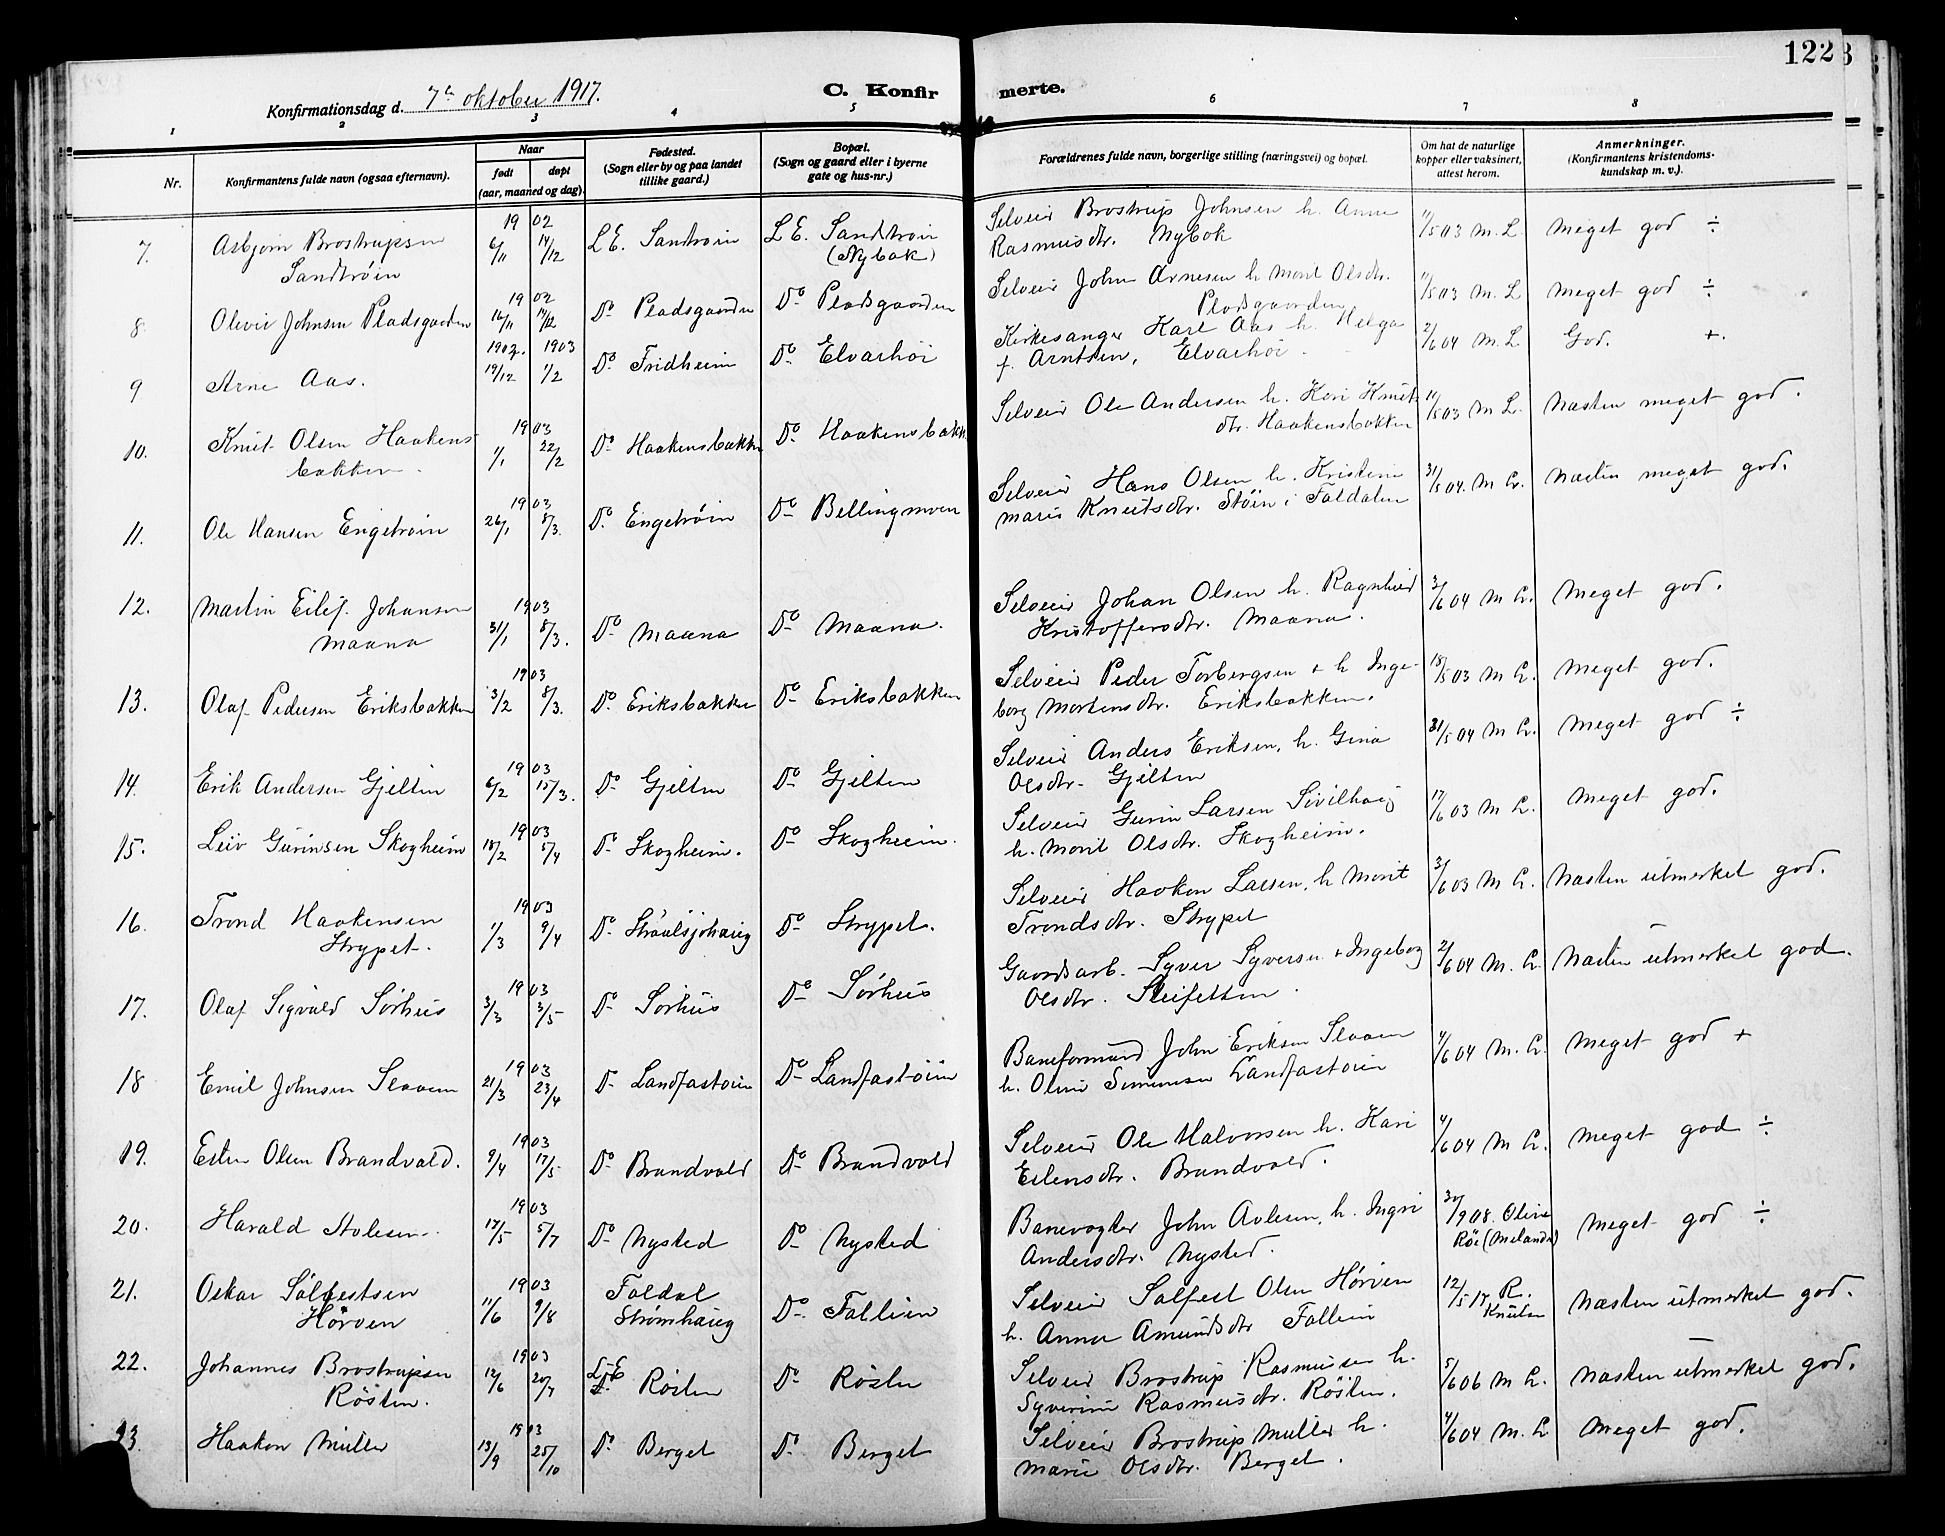 122
Konfirmationsdag d. 7de oktober 1917.
C. Konfirmerte.
1 2 3 4 5 6 7 8
Nr.
Konfirmantens fulde navn (ogsaa efternavn).
Naar
født døpt
(aar, maaned og dag).
Fødested.
(Sogn eller by og paa landet
tillike gaard.)
Bopæl.
(Sogn og gaard eller i byerne
gate og hus-nr.)
Forældrenes fulde navn, borgerlige stilling (næringsvei) og bopæl.
Om hat de naturlige
kopper eller vaksinert,
attest herom.
Anmerkninger.
(Konfirmantens kristendoms-
kundskap m. v.).
7. Asbjørn Brostrupsen Sandtrøin 1902 6/11 14/12 L.E. Sandtrøin L.E. Sandtrøin (Nybak) Selveier Brostrup Johnsen h. Anne Rasmusdtr. Nybak 11/5 03 M. L. Meget god ÷
8 Oliver Johnsen Pladsgaarden 1902 16/11 14/12 Do Pladsgaarden Do Pladsgaarden Selveier John Arnesen h. Marit Olsdtr. Pladsgaarden 11/5 03 M. L. Meget god ÷
9 Arne Aas. 1902. 19/12 1903 1/2 Do Fridheim Do Elvarhöi Kirkesanger Karl Aas h. Helga f. Arntsen, Elvarhöi. 2/6 04 M. L. God. +.
10. Knut Olsen Haakensbakken. 1903 1/1 22/2 Do Haakensbakken Do Haakensbakk. Selveier Ole Andersen h. Kari Knutsdtr. Haakensbakken 11/5 03 M L. Næsten meget god.
11. Ole Hansen Engetrøin 1903 26/1 8/3. Do Engetrøin Do Bellingmoen Selveier Hans Olsen h. Kristine Marie Knutsdtr. Støin i Foldalen 31/5 04. M L. Næsten meget god.
12. Martin Eilif Johansen Maana 1903 31/1 8/3. Do Maana Do Maana. Selveier Johan Olsen h. Ragnhild Kristoffersdtr. Maana. 3/6 04 M L. Meget god.
13. Olaf Pedersen Eriksbakken 1903 3/2 8/3. Do Eriksbakken Do Eriksbakken Selveier Peder Torbergsen + h Ingeborg Mortensdtr. Eriksbakken. 18/5 03 M L. Meget god.
14. Erik Andersen Gjelten 1903 6/2 15/3. Do Gjelten Do Gjelten Selveier Anders Eriksen, h. Gina Olsdtr. Gjelten 31/5 04 M L. Meget god ÷
15. Leiv Gurinsen Skogheim 1903 18/2 5/4 Do Skogheim. Do Skogheim. Selveier Gurin Larsen Sivilhaug h. Marit Olsdtr. Skogheim. 17/6 03 M L. Meget god.
16. Trond Haakensen Strypet. 1903 1/3 9/4 Do Straalsjøhaug Do Strypet. Selveier Haakon Larsen, h Marit Trondsdtr. Strypet 3/6 03 M L. Næsten utmerket god.
17. Olaf Sigvald Sørhus 1903 3/3 3/5 Do Sørhus Do Sørhus Gaardsarb. Syver Syversen + Ingeborg Olsdtr. Sleifetten. 2/6 04 M. L. Næsten utmerket god.
18 Emil Johnsen Slaaen 1903 21/3 23/4 Do Landfastøien Do Landfastøien Baneformand John Eriksen Slaaen h. Oline Simensen Landfastøien 4/6 04 M. L. Meget god +
19. Esten Olsen Brandvald. 1903 9/4 17/5 Do Brandvald Do Brandvold Selveier Ole Halvorsen h. Kari Eilensdtr. Brandvald. 4/6 04 M L. Meget god ÷
20. Harald Avlesen. 1903 17/5 5/7 Do Nysted Do Nysted Banevogter John Avlesen, h. Ingri Andersdtr. Nysted. 30/9 08. Oline Röe (Meland) Meget god ÷
21. Oskar Sølfestsen Hørven 1903 11/6 9/8 Foldal Strømhaug Do Follien Selveier Salfest Olsen Hörven h. Anna Amundsdtr Follien 12/5 17. R. Knutsen Næsten utmerket god.
22. Johannes Brostrupsen Röstin. 1903 12/6 20/7 L.E. Røsten Do Røsten Selveier Brostrup Rasmussen h. Syverine Rasmusdtr. Röstin. 5/6 06 M L. Næsten utmerket god.
23. Haakon Müller 1903 13/9 25/10 Do Berget Do Berget Selveier Brostrup Müller h. Marie Olsdtr. Berget. 4/6 04 M. L Meget god.